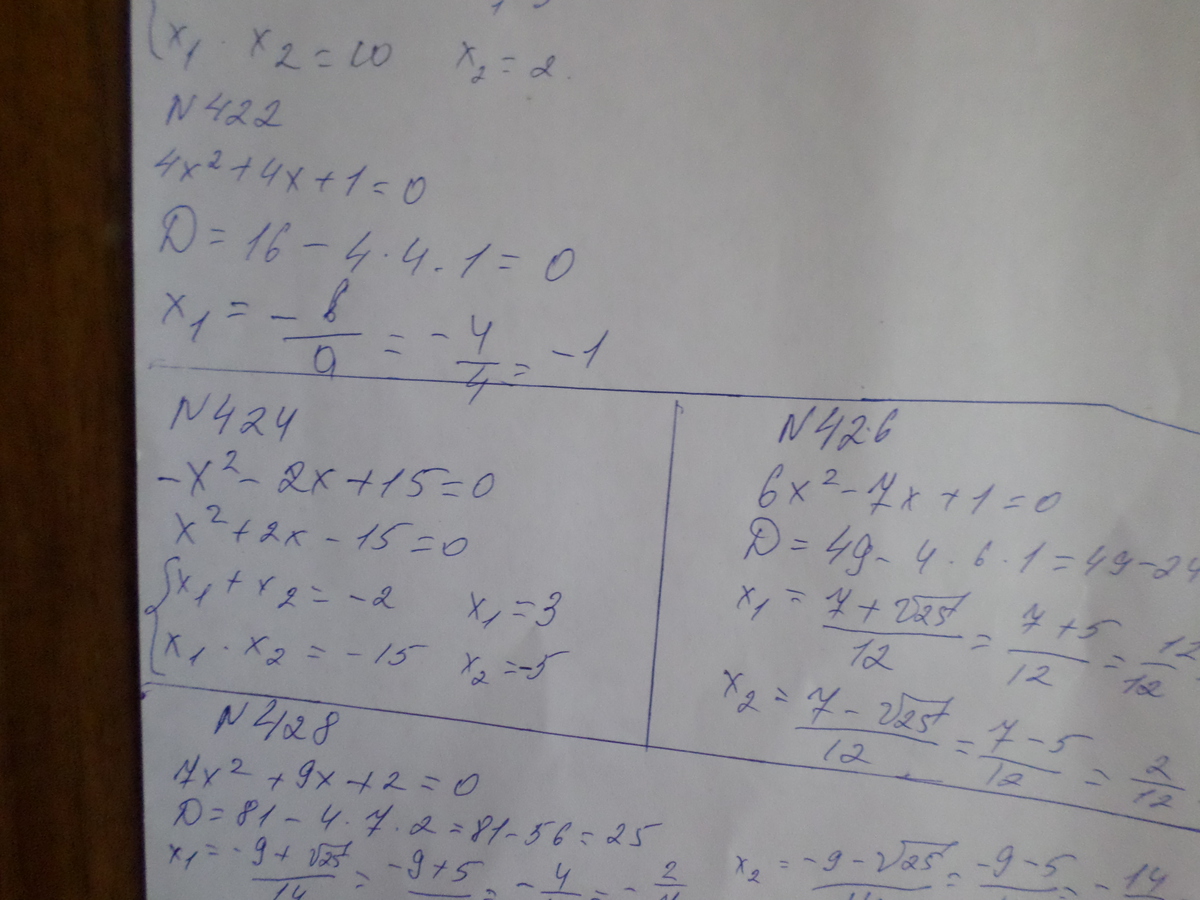 x₁ · x₂ = 10 x₂ = 2.
N 422
4x² + 4x + 1 = 0
D = 16 - 4 · 4 · 1 = 0
x₁ = -b/a = -4/4 = -1
N 424
-x² - 2x + 15 = 0
x² + 2x - 15 = 0
{x₁ + x₂ = -2 x₁ = 3
x₁ · x₂ = -15 x₂ = -5
N 426
6x² - 7x + 1 = 0
D = 49 - 4 · 6 · 1 = 49 - 24
x₁ = (7 + √25)/12 = (7 + 5)/12 = 12/12
x₂ = (7 - √25)/12 = (7 - 5)/12 = 2/12
N 428
7x² + 9x + 2 = 0
D = 81 - 4 · 7 · 2 = 81 - 56 = 25
x₁ = (-9 + √25)/14 = -9 + 5 = -4 = -2 x₂ = -9 - √25 = -9 - 5 = -14